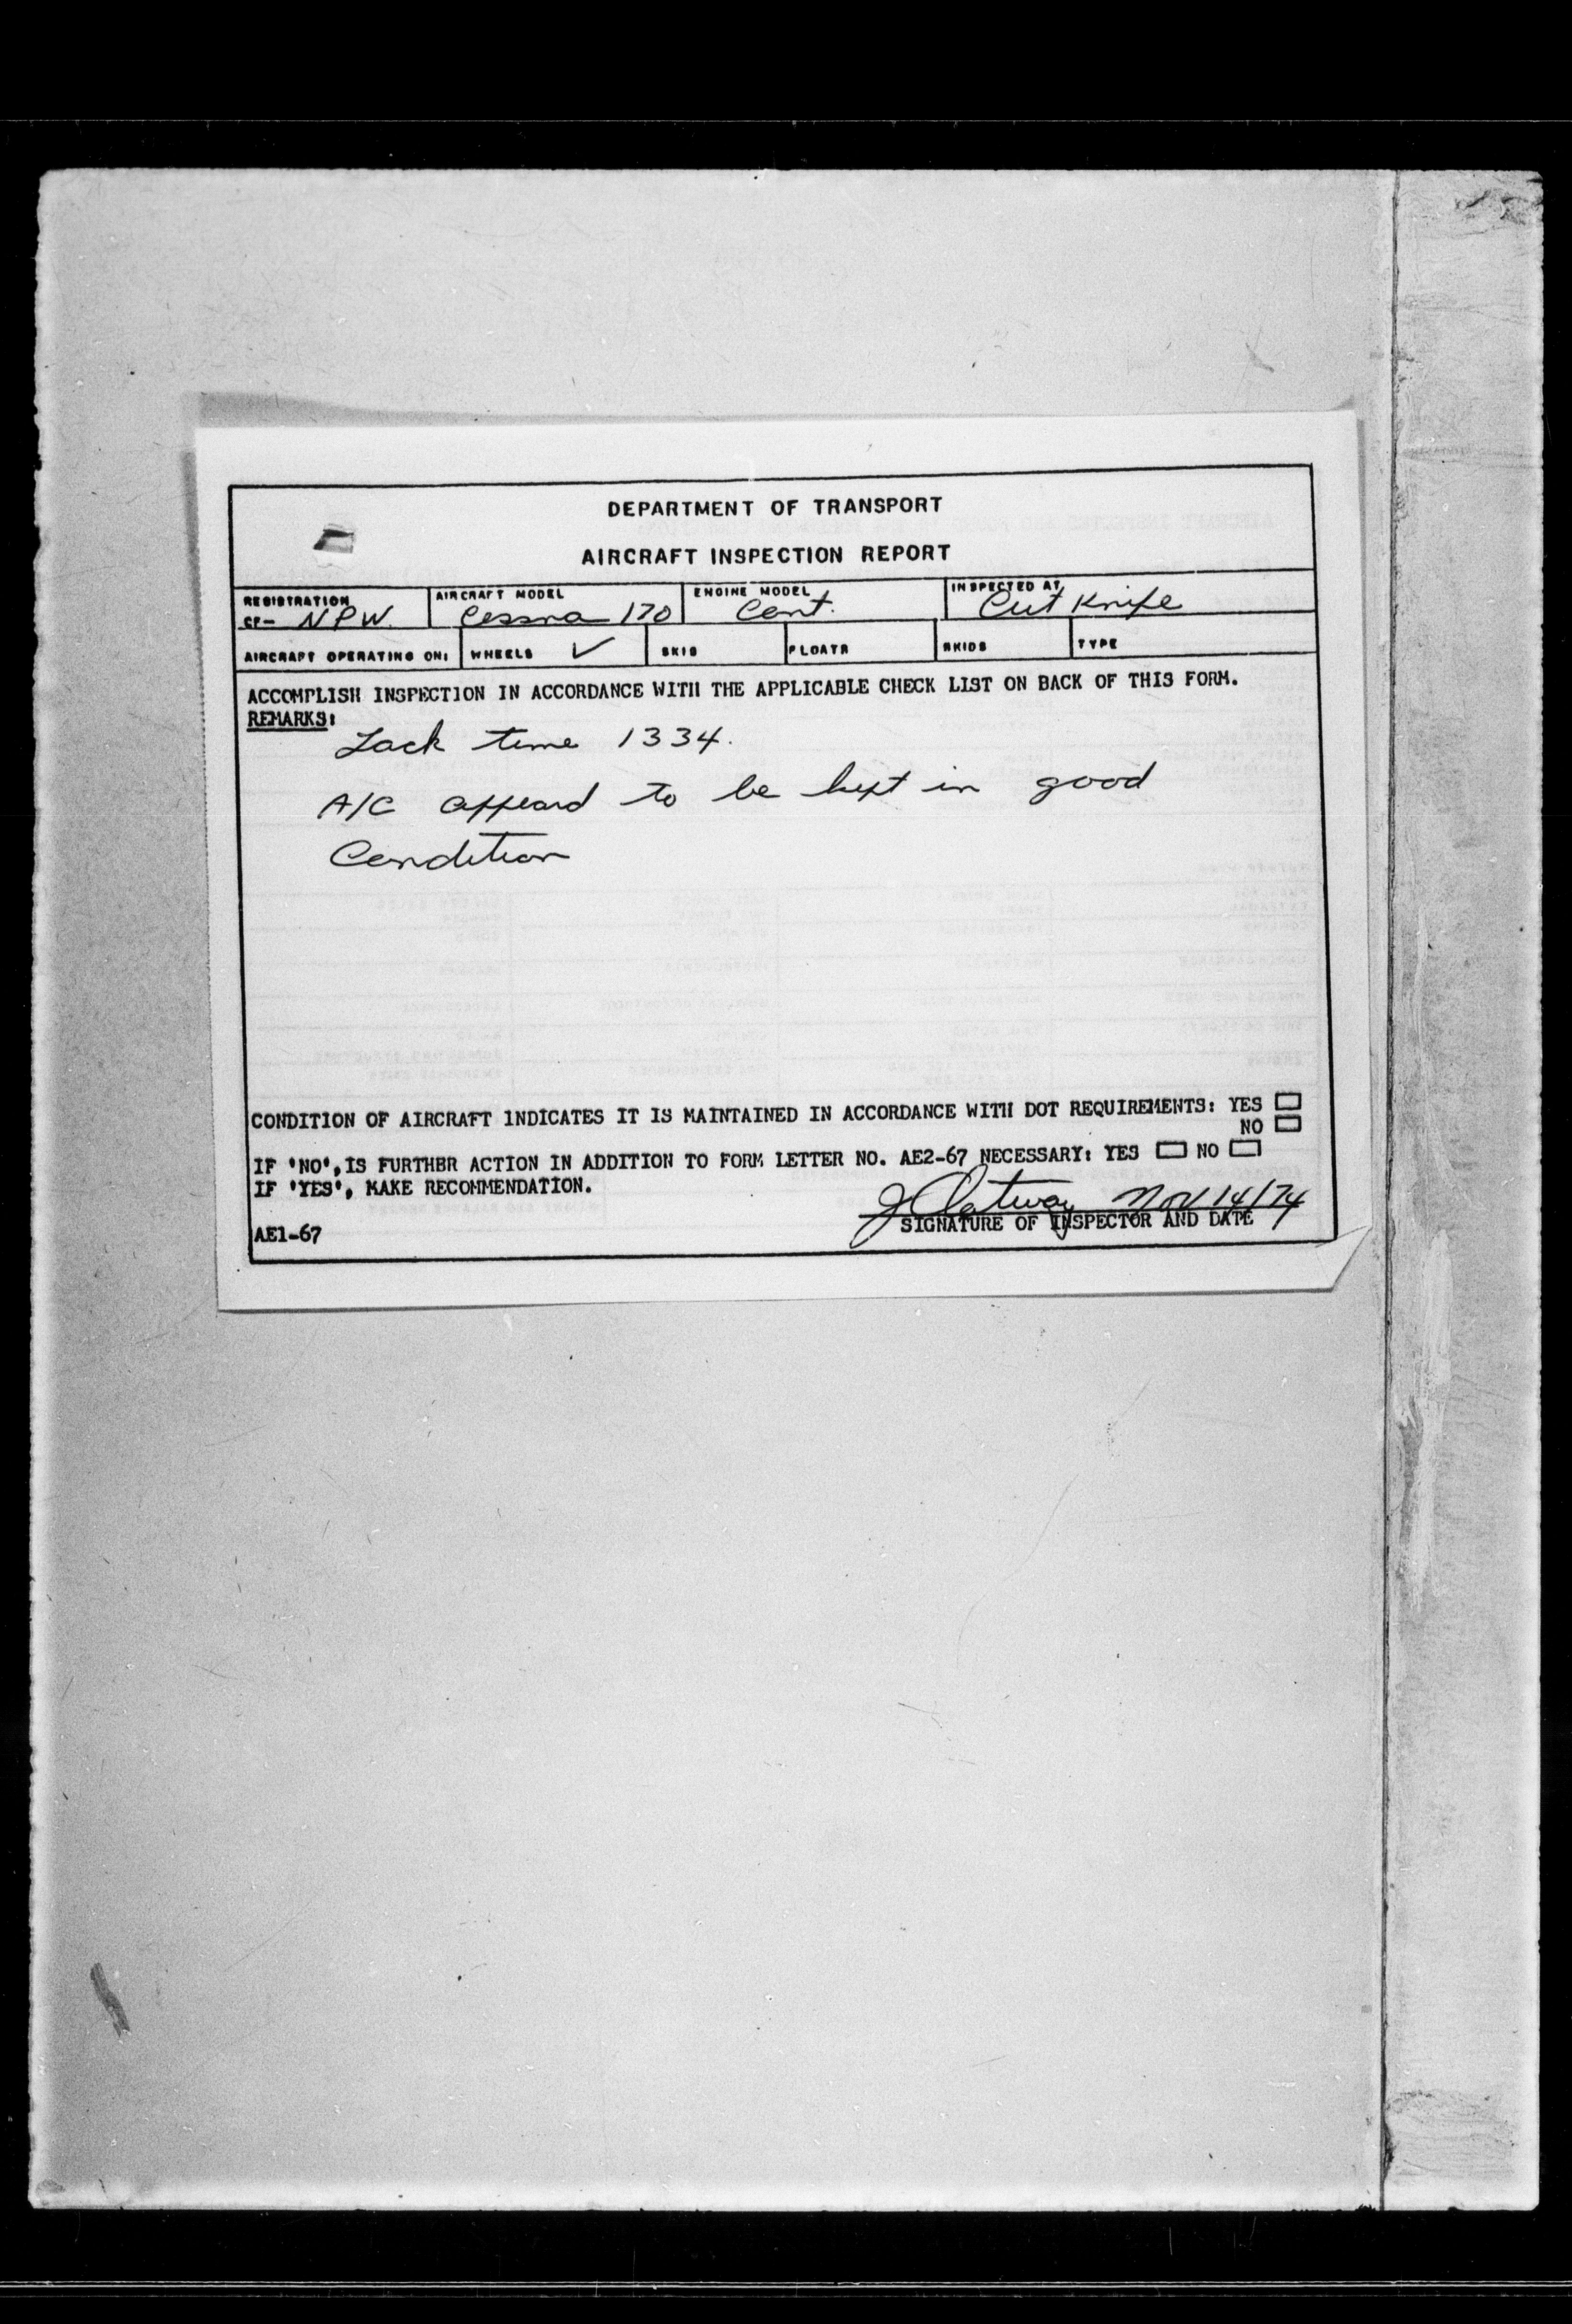 DEPARTMENT OF TRANSPORT
AIRCRAFT INSPECTION REPORT
REGISTRATION AIRCRAFT MODEL ENGINE MODEL INSPECTED AT
CF- NPW. Cessna 170 Cont. Cut Knife
AIRCRAFT OPERATING ON: WHEELS ✓ SKIS FLOATS SKIDS TYPE
ACCOMPLISH INSPECTION IN ACCORDANCE WITH THE APPLICABLE CHECK LIST ON BACK OF THIS FORM.
REMARKS:
Tach time 1334.
A/C appeard to be kept in good
Condition
CONDITION OF AIRCRAFT INDICATES IT IS MAINTAINED IN ACCORDANCE WITH DOT REQUIREMENTS: YES
NO
IF 'NO', IS FURTHER ACTION IN ADDITION TO FORM LETTER NO. AE2-67 NECESSARY: YES NO
IF 'YES', MAKE RECOMMENDATION.
Nov 14/74
SIGNATURE OF INSPECTOR AND DATE
AE1-67